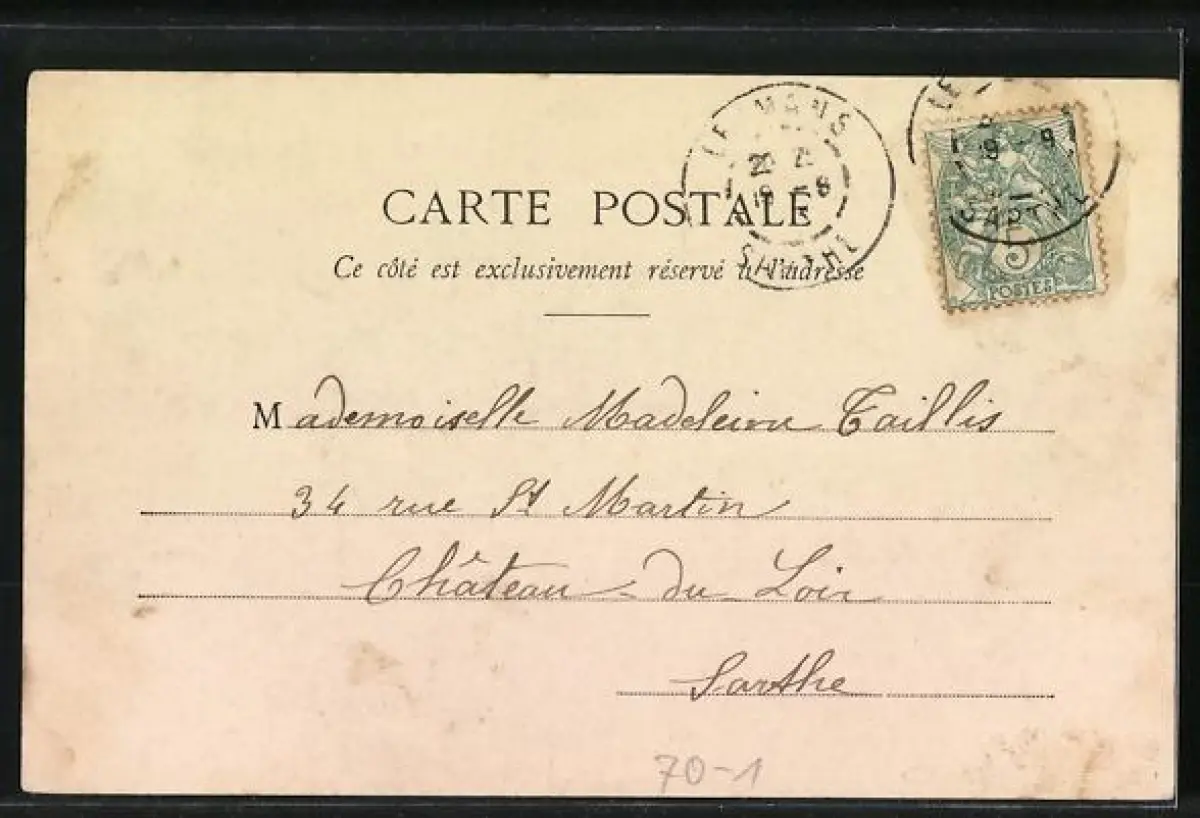 LE MANS
SARTHE
LE
SARTHE
5
POSTES
CARTE POSTALE
Ce côté est exclusivement réservé à l'adresse
Mademoiselle Madeleine Taillis
34 rue St Martin
Château-du-Loir
Sarthe
70-1